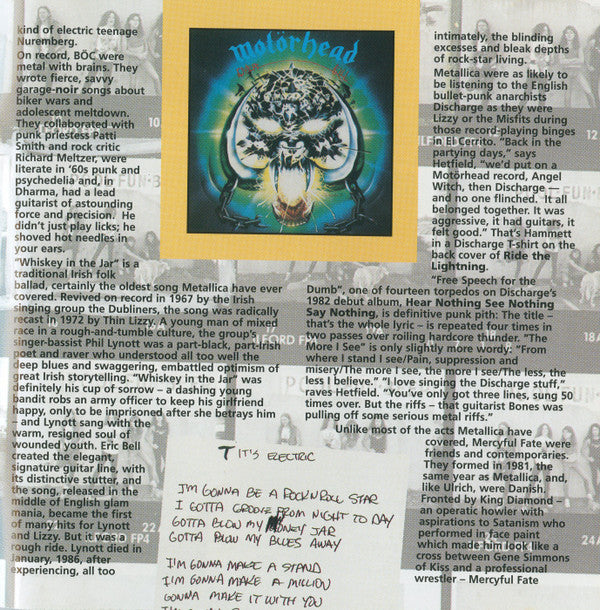 kind of electric teenage
Nuremberg.
On record, BÖC were
metal with brains. They
wrote fierce, savvy
garage-noir songs about
biker wars and
adolescent meltdown.
They collaborated with
punk priestess Patti
Smith and rock critic
Richard Meltzer, were
literate in '60s punk and
psychedelia and, in
Dharma, had a lead
guitarist of astounding
force and precision. He
didn't just play licks; he
shoved hot needles in
your ears.
"Whiskey in the Jar" is a
traditional Irish folk
ballad, certainly the oldest song Metallica have ever
covered. Revived on record in 1967 by the Irish
singing group the Dubliners, the song was radically
recast in 1972 by Thin Lizzy. A young man of mixed
race in a rough-and-tumble culture, the group's
singer-bassist Phil Lynott was a part-black, part-Irish
poet and raver who understood all too well the
deep blues and swaggering, embattled optimism of
great Irish storytelling. "Whiskey in the Jar" was
definitely his cup of sorrow – a dashing young
bandit robs an army officer to keep his girlfriend
happy, only to be imprisoned after she betrays him
– and Lynott sang with the
warm, resigned soul of
wounded youth. Eric Bell
created the elegant,
signature guitar line, with
its distinctive stutter, and
the song, released in the
middle of English glam
mania, became the first
of many hits for Lynott
and Lizzy. But it was a
rough ride. Lynott died in
January, 1986, after
experiencing, all too
Motörhead
intimately, the blinding
excesses and bleak depths
of rock-star living.
Metallica were as likely to
be listening to the English
bullet-punk anarchists
Discharge as they were
Lizzy or the Misfits during
those record-playing binges
in El Cerrito. "Back in the
partying days," says
Hetfield, "we'd put on a
Motörhead record, Angel
Witch, then Discharge –
and no one flinched. It all
belonged together. It was
aggressive, it had guitars, it
felt good." That's Hammett
in a Discharge T-shirt on the
back cover of Ride the
Lightning.
"Free Speech for the
Dumb", one of fourteen torpedos on Discharge's
1982 debut album, Hear Nothing See Nothing
Say Nothing, is definitive punk pith: The title –
that's the whole lyric – is repeated four times in
two passes over roiling hardcore thunder. "The
More I See" is only slightly more wordy: "From
where I stand I see/Pain, suppression and
misery/The more I see, the more I see/The less, the
less I believe." "I love singing the Discharge stuff,"
raves Hetfield. "You've only got three lines, sung 50
times over. But the riffs – that guitarist Bones was
pulling off some serious metal riffs."
Unlike most of the acts Metallica have
covered, Mercyful Fate were
friends and contemporaries.
They formed in 1981, the
same year as Metallica, and,
like Ulrich, were Danish.
Fronted by King Diamond –
an operatic howler with
aspirations to Satanism who
performed in face paint
which made him look like a
cross between Gene Simmons
of Kiss and a professional
wrestler – Mercyful Fate
IT'S ELECTRIC
I'M GONNA BE A ROCK'N'ROLL STAR
I GOTTA GROOVE FROM NIGHT TO DAY
GOTTA BLOW MY MONEY JAR
GOTTA BLOW MY BLUES AWAY
I'M GONNA MAKE A STAND
I'M GONNA MAKE A MILLION
GONNA MAKE IT WITH YOU